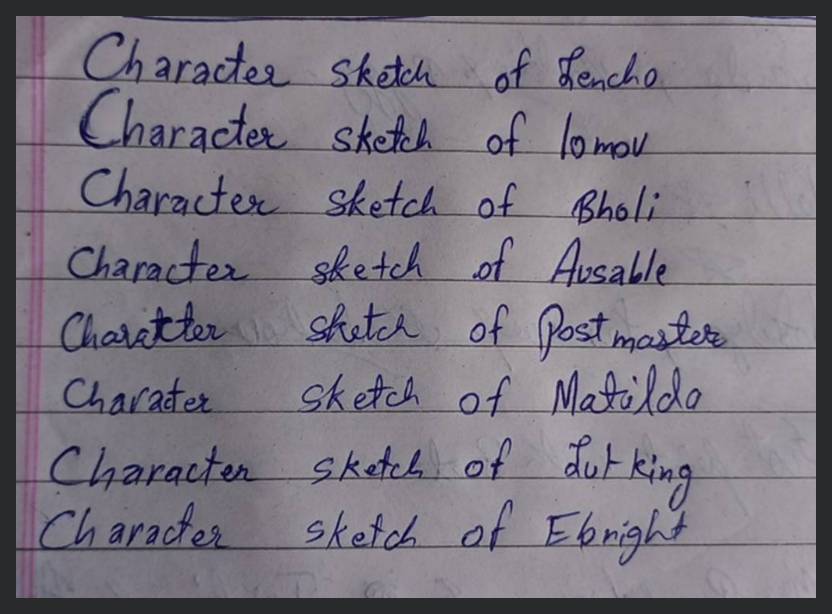 Character sketch of Lencho
Character sketch of lomov
Character sketch of Bholi
Character sketch of Ausable
Charatter sketch of Postmaster
Charater sketch of Matilda
Character sketch of Lutking
Character sketch of Ebright